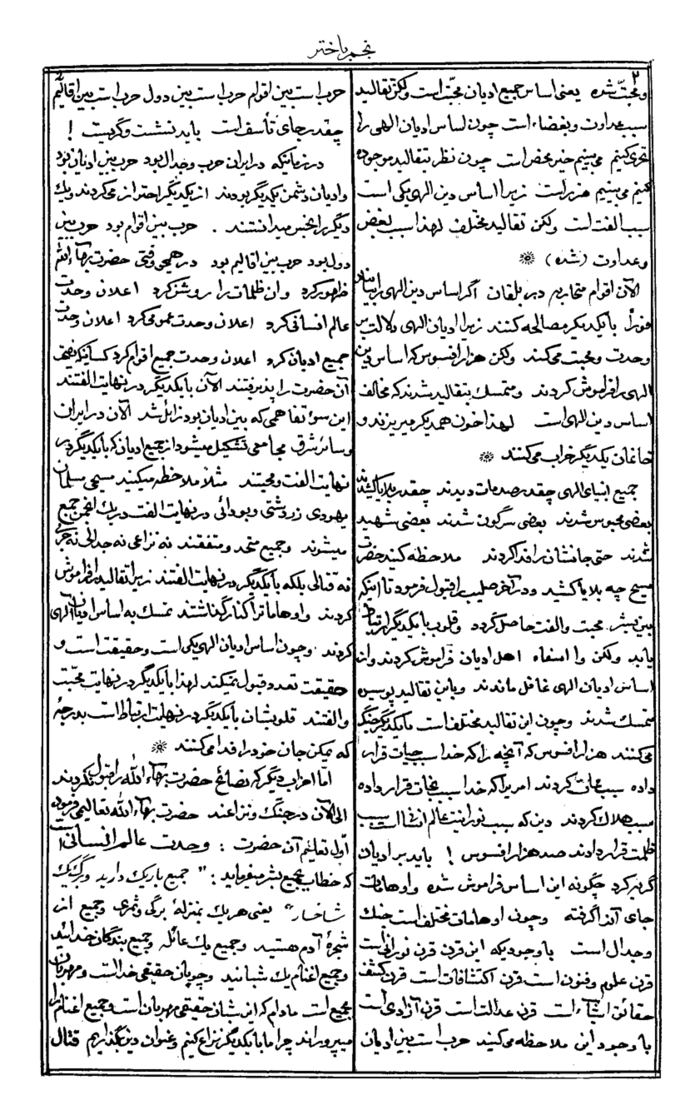 نجم باختر
۲
و محبّت شده یعنی اساس جمیع ادیان محبّت است ولکن تقالید
سبب عداوت و بغضاء است چون اساس ادیان الهی را
تحرّی کنیم می‌بینیم خیر محض است چون نظر بتقالید موجوده
کنیم می‌بینیم ضرر است زیرا اساس دین الهی یکی است
سبب الفت است ولکن تقالید مختلف لهذا سبب بغض
و عداوت (شده) *
الآن اقوام متحاربه در بلقان اگر اساس دین الهی را بیابند
فوراً با یکدیگر مصالحه کنند زیرا ادیان الهی دلالت بر
وحدت و محبت میکند ولکن هزار افسوس که اساس دین
الهی را فراموش کردند و متمسک بتقالید شدند که مخالف
اساس دین الهی است لهذا خون همدیگر میریزند و
خانمان یکدیگر خراب می‌کنند *
جمیع انبیای الهی چقدر صدمات دیدند چقدر بلایا کشیدند
بعضی محبوس شدند بعضی سرگون شدند بعضی شهید
شدند حتی جانشان را فدا کردند ملاحظه کنید حضرت
مسیح چه بلایا کشید و در آخر صلیب را قبول فرمود تا اینکه
بین بشر محبت و الفت حاصل گردد و قلوب با یکدیگر ارتباط
یابد ولکن وا اسفاه اهل ادیان فراموش کردند و از
اساس ادیان الهی غافل ماندند و باین تقالید پوسیده
متمسک شدند و چون این تقالید مختلف است با یکدیگر جنگ
می‌کنند هزار افسوس که آنچه را که خدا سبب حیات قرار
داده سبب ممات کردند امریرا که خدا سبب نجات قرار داده
سبب هلاک کردند دین که سبب نورانیت عالم انسانی است سبب
ظلمت قرار دادند صد هزار افسوس ! باید بر ادیان
گریه کرد چگونه این اساس فراموش شده و اوهامات
جای آنرا گرفته و چون اوهامات مختلف است جنگ
و جدال است با وجودیکه این قرن قرن نورانی است
قرن علوم و فنون است قرن اکتشافات است قرن کشف
حقائق اشیاء است قرن عدالت است قرن آزادی است
با وجود این ملاحظه می‌کنید حرب است بین ادیان
حرب است بین اقوام حرب است بین دول حرب است بین اقالیم
چقدر جای تأسف است باید نشست و گریست !
در زمانیکه در ایران حرب و جدال بود حرب بین ادیان بود
و ادیان دشمن یکدیگر بودند از یکدیگر احتراز می‌کردند و یک
دیگر را نجس میدانستند . حرب بین اقوام بود حرب بین
دول بود حرب بین اقالیم بود در همچو وقتی حضرت بهاءالله
ظهور کرد و آن ظلمات را روشن کرد اعلان وحدت
عالم انسانی کرد اعلان وحدت عمومی کرد اعلان وحدت
جمیع ادیان کرد اعلان وحدت جمیع اقوام کرد کسانیکه نصایح
آن حضرت را پذیرفتند الآن با یکدیگر در نهایت الفتند
این سوء تفاهمی که بین ادیان بود زایل شد الآن در ایران
و سائر شرق مجامعی تشکیل میشود از جمیع ادیان که با یکدیگر در
نهایت الفت و محبتند مثلاً ملاحظه میکنید مسیحی مسلمان
یهودی زردشتی و بودائی در نهایت الفت در یک انجمن جمع
میشوند و جمیع متحد و متفقند نه نزاعی نه جدالی نه حربی
نه قتالی بلکه با یکدیگر در نهایت الفتند زیرا تقالید را فراموش
کردند و اوهامات را کنار گذاشتند تمسک به اساس ادیان الهی
کردند و چون اساس ادیان الهی یکی است و حقیقت است و
حقیقت تعدد قبول نمیکند لهذا با یکدیگر در نهایت محبّت
و الفتند قلوبشان با یکدیگر در نهایت ارتباط است بدرجهٔ
که یکی جان خود را فدا می‌کنند *
اما احزاب دیگر که نصائح حضرت بهاءالله را قبول نکردند
الی الآن در جنگ و نزاعند حضرت بهاءالله تعالیمی فرموده
اول تعالیم آن حضرت : وحدت عالم انسانی است
که خطاب بجمیع بشر میفرماید : "جمیع بار یک دارید و برگ یک
شاخسار" یعنی هر یک بمنزله برگی و ثمری و جمیع از
شجرهٔ آدم هستید و جمیع یک عائله و جمیع بندگان خدائید
و جمیع اغنام یک شبانند و چوپان حقیقی خداست و مهربان
بجمیع است مادام که این شبان حقیقی مهربان است و جمیع اغنام را
میپروراند چرا ما با یکدیگر نزاع کنیم و عنوان دین بگذاریم قتال